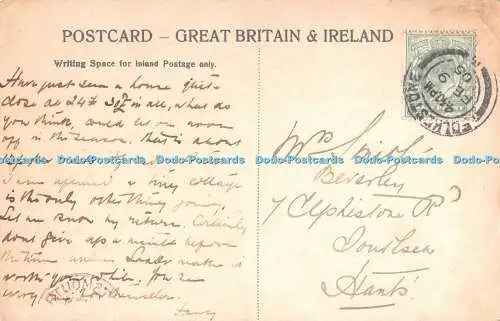 POSTCARD – GREAT BRITAIN & IRELAND
Writing Space for Inland Postage only.
Have just seen a house quite
close as 24/- in all, what do
you think, could let one room
off in the season. That is about
Dodo-Postcards Dodo-Postcards Dodo-Postcards Dodo-Postcards Dodo-Postcards
I am afraid a tiny cottage
is the only other thing going.
Let me know by return. Certainly
dont give up a minute before
the time unless Loader make it
worth your while,
Harry
FOLKESTONE
FE 9
05
Mrs
Beverley
7 Elphistone Rd
Southsea
Hants